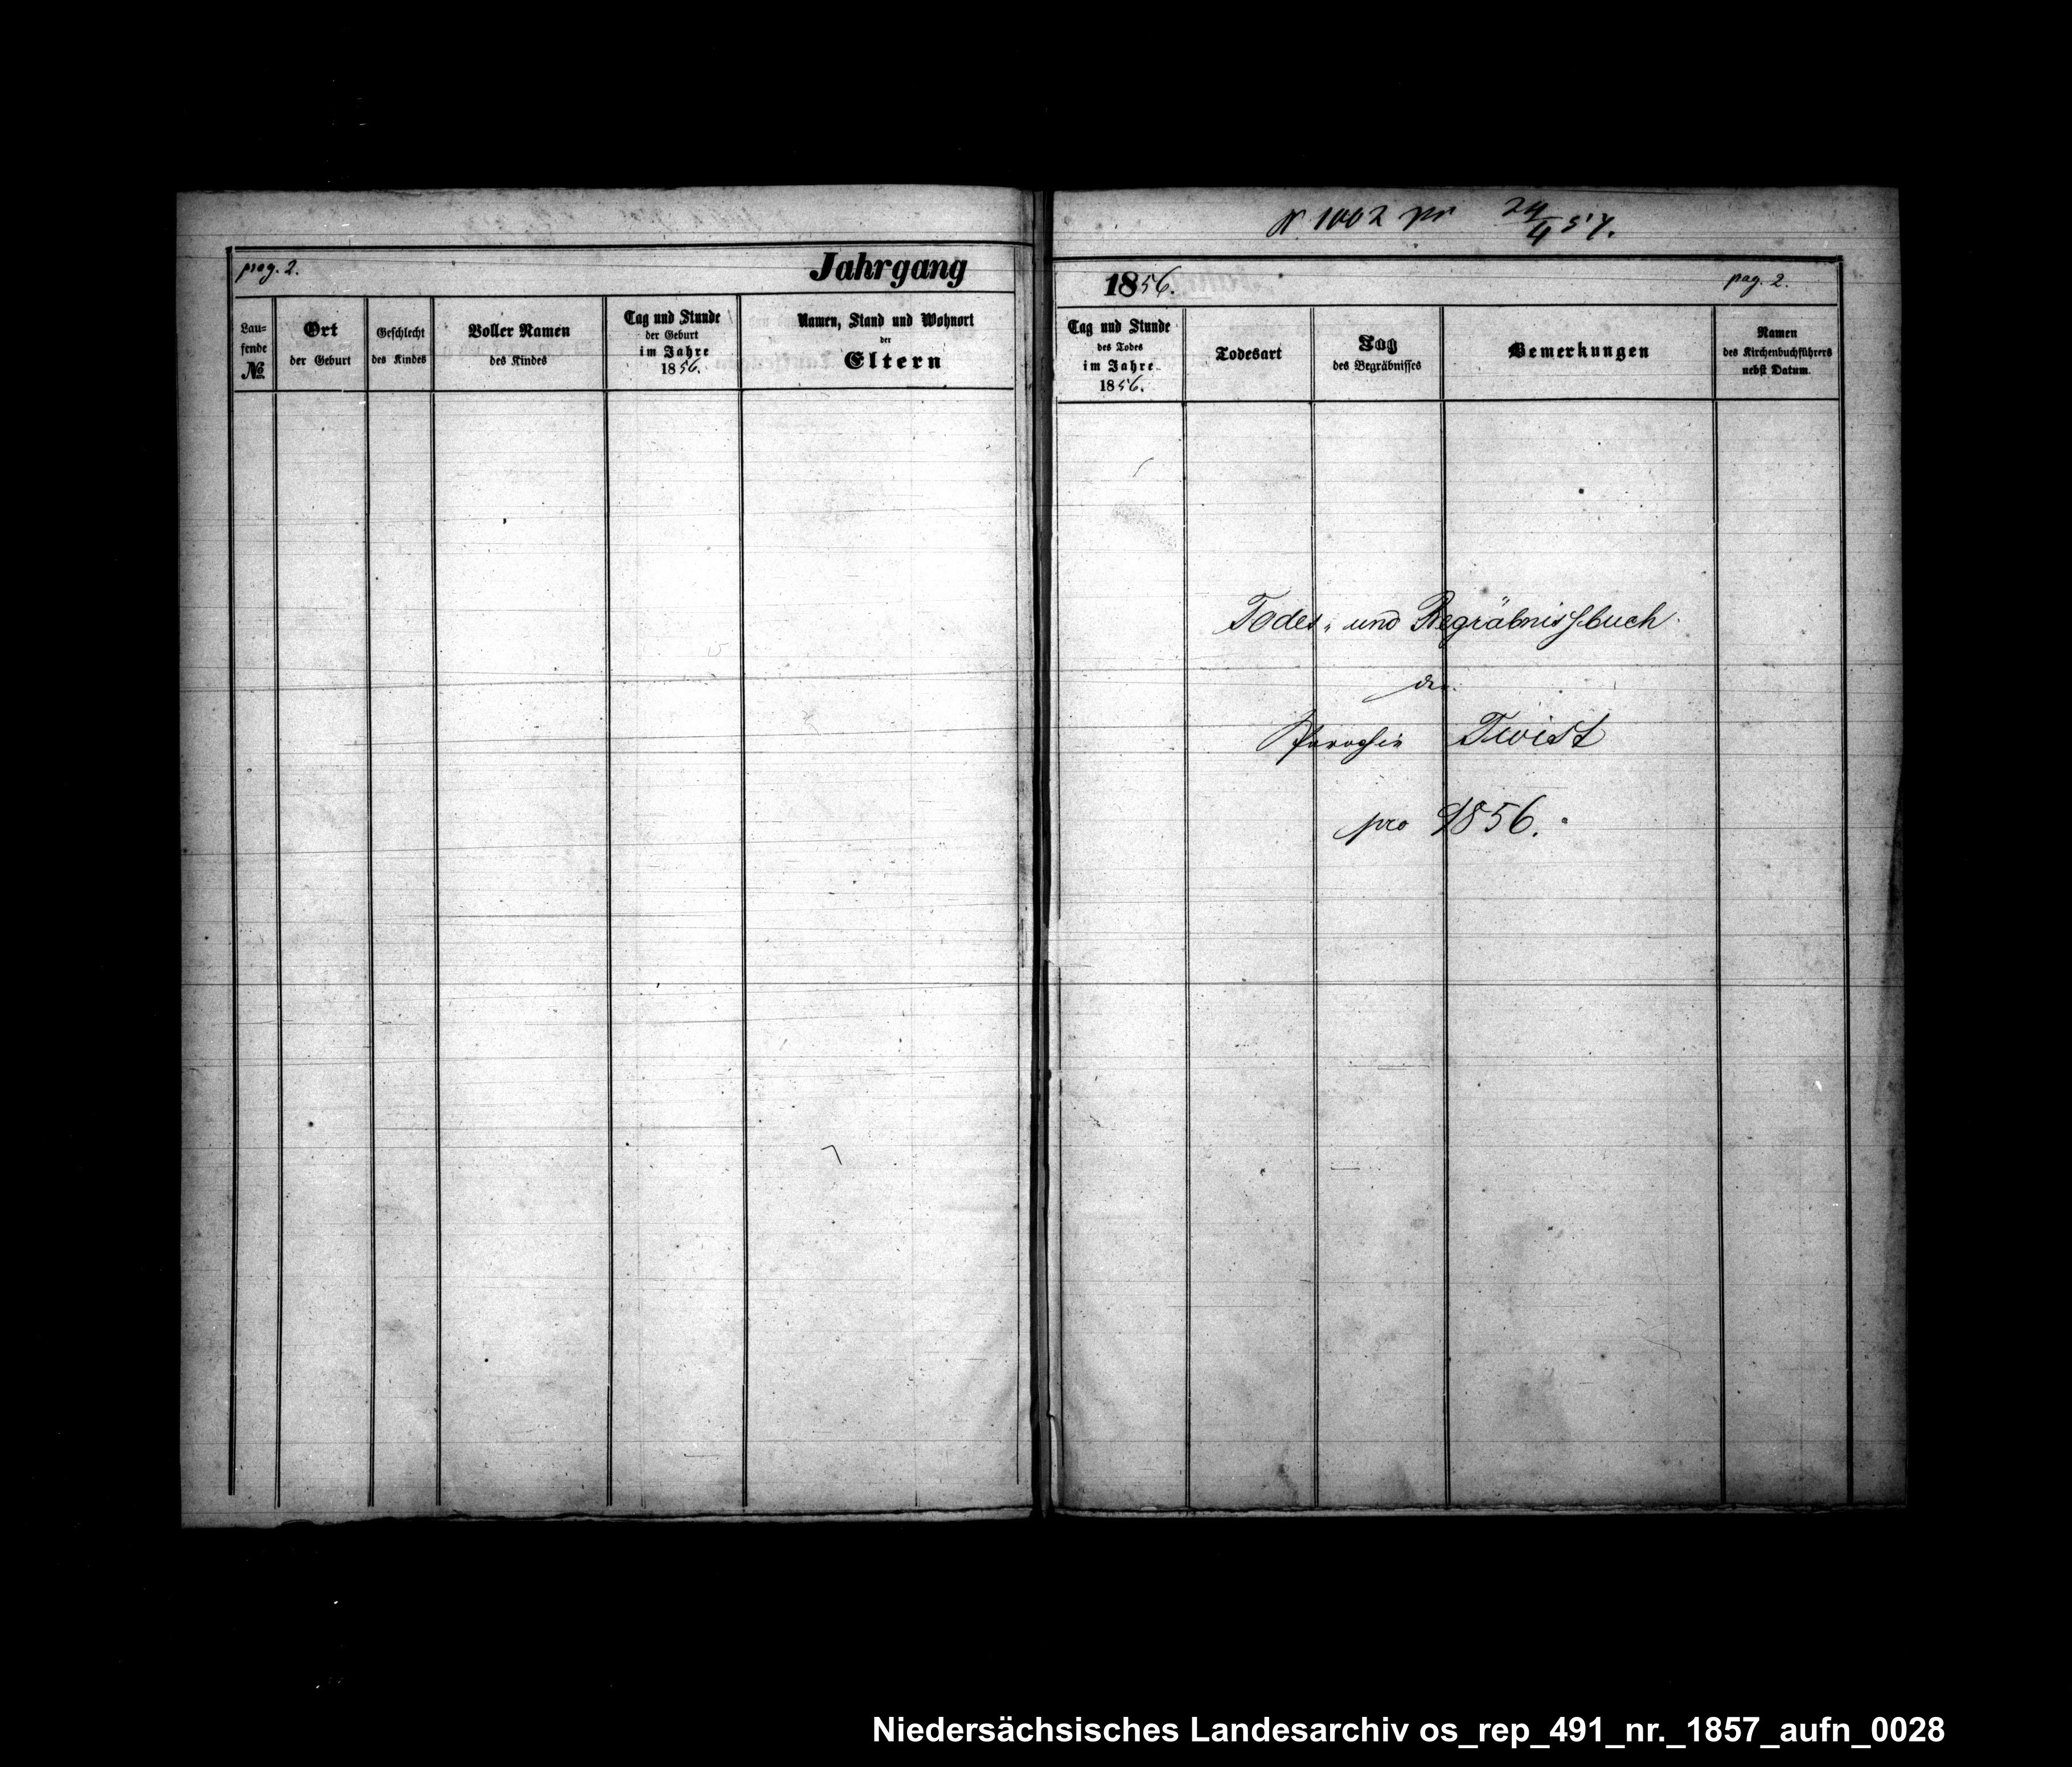 pag. 2.
Jahrgang
Lau=
fende
№
Ort
der Geburt
Geschlecht
des Kindes
Voller Namen
des Kindes
Tag und Stunde
der Geburt
im Jahre
1856.
Namen, Stand und Wohnort
der
Eltern
N 1002 pr 24/4 57.
1856.
pag. 2.
Tag und Stunde
des Todes
im Jahre
1856.
Todesart
Tag
des Begräbnisses
Bemerkungen
Namen
des Kirchenbuchführers
nebst Datum.
Todes- und Begräbnissbuch
der
Pfarochie Twist
pro 1856.
Niedersächsisches Landesarchiv os_rep_491_nr._1857_aufn_0028